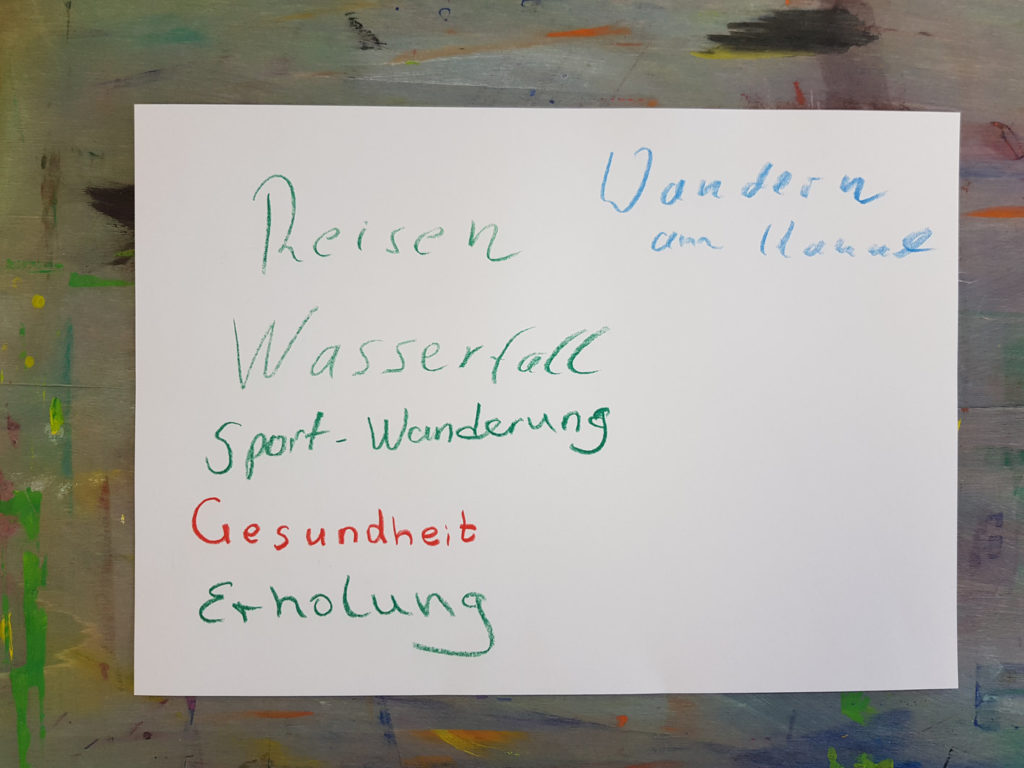 Reisen
Wandern
am Kanal
Wasserfall
Sport-Wanderung
Gesundheit
Erholung